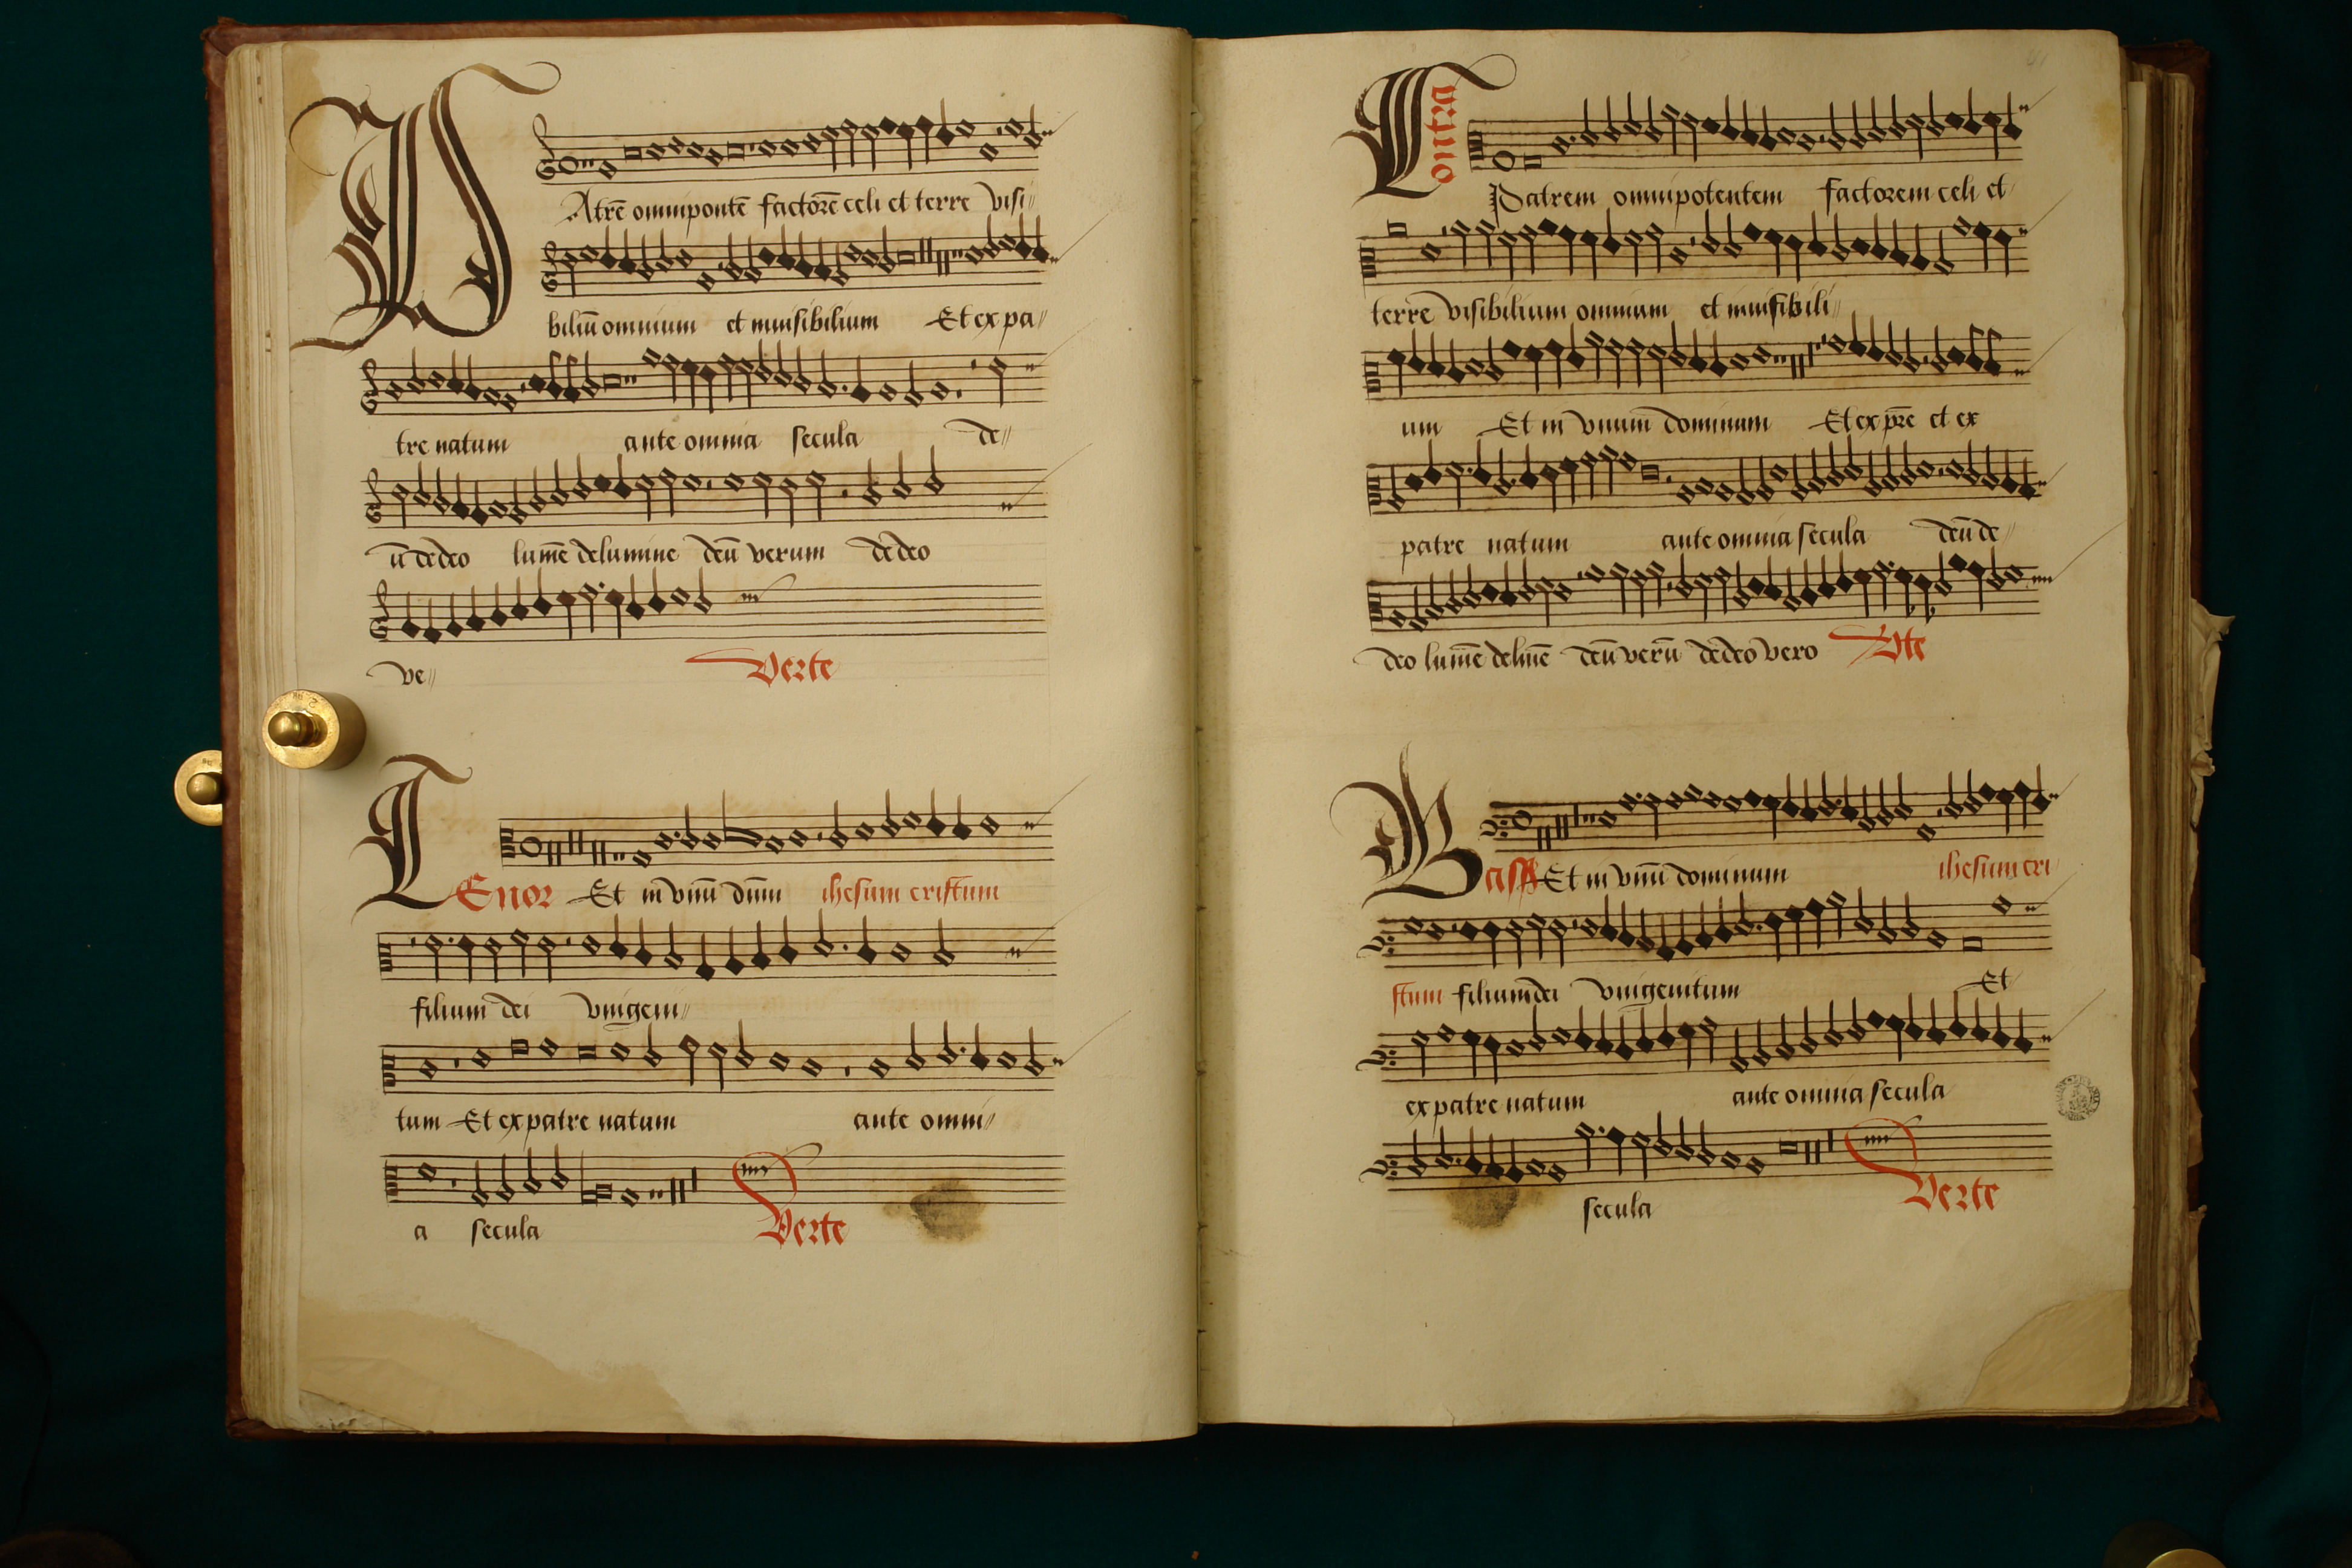 PAtrē omnipontē factorē celi et terre visi//
biliū omnium et invisibilium Et ex pa//
tre natum ante omnia secula de//
ū de deo lumē de lumine deū verum de deo
ve//
Verte
TEnor Et in vnū dnm ihesum cristum
filium dei vnigeni//
tum Et ex patre natum ante omni//
a secula
Verte
Patrem omnipotentem factorem celi et
terre visibilium omnium et invisibili//
um Et in vnum dominum Et ex pre et ex
patre natum ante omnia secula deū de//
deo lumē de linē deū verū de deo vero Vte
Bass Et in vnū dominum ihesum cri
stum filium dei vnigenitum Et
ex patre natum ante omnia secula
secula
Verte